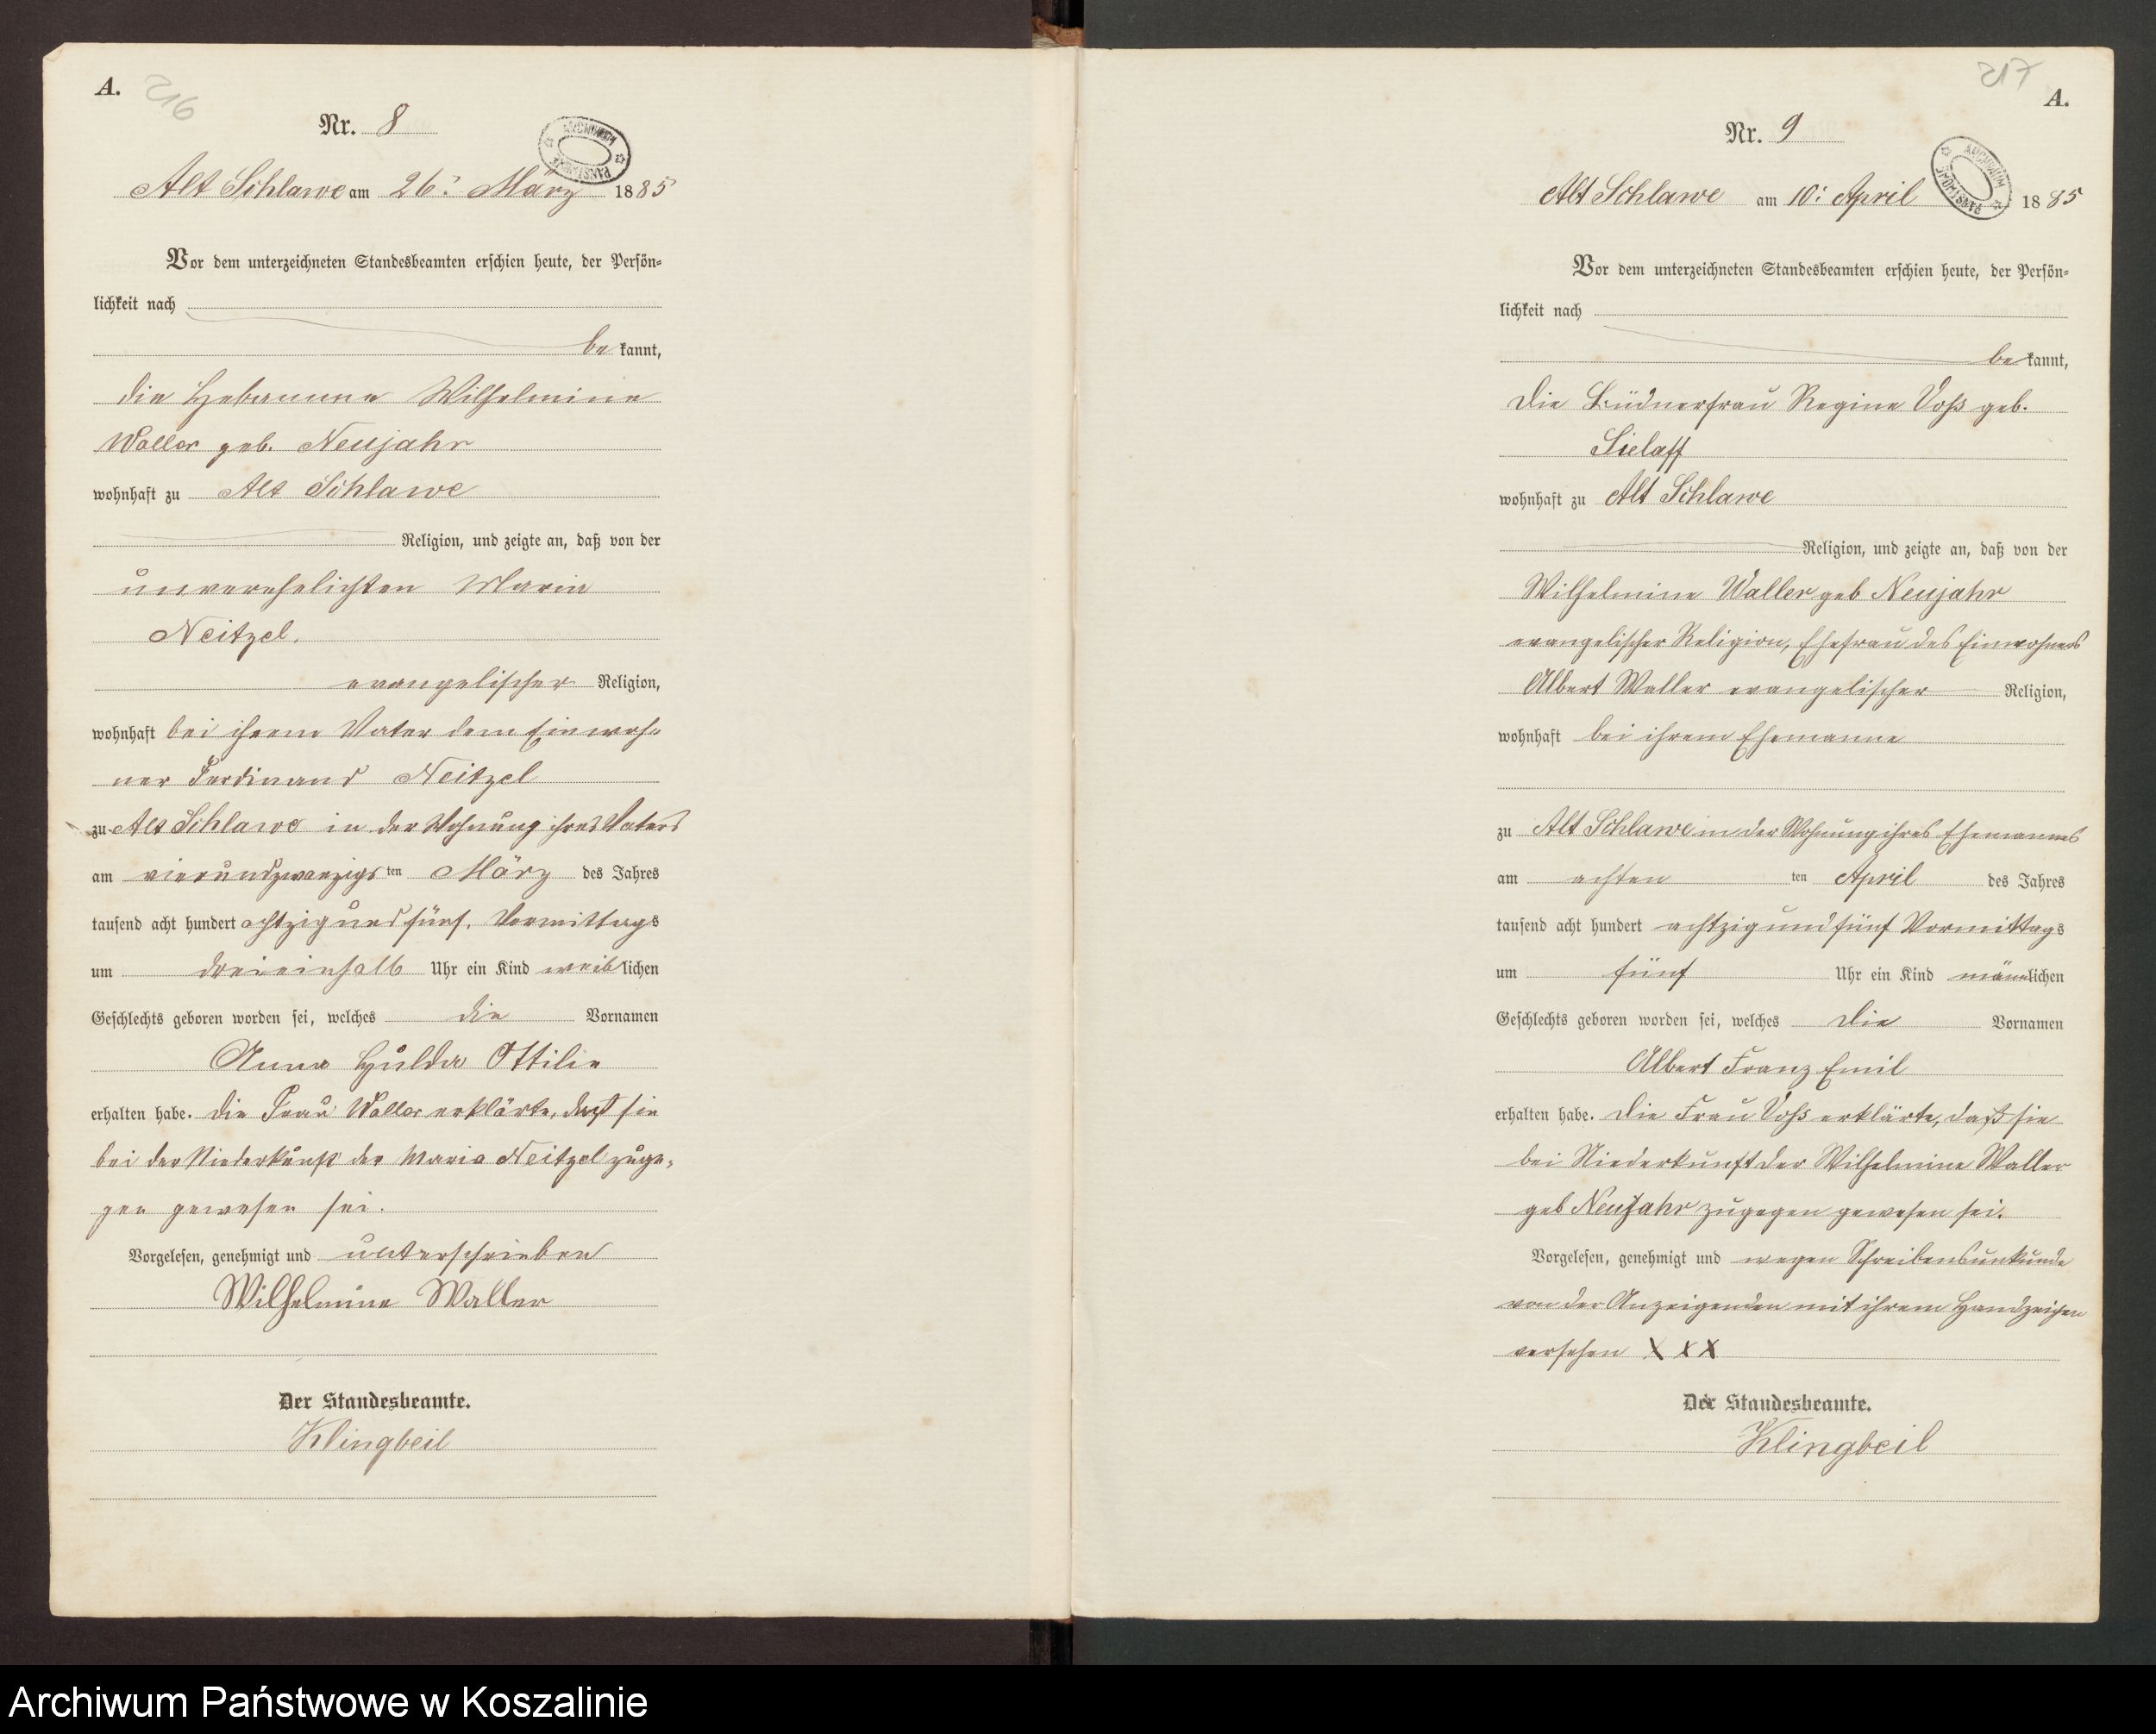 A.
216
Nr. 8
ARCHIWUM PAŃSTWOWE
Alt Schlawe am 26. März 1885
Vor dem unterzeichneten Standesbeamten erschien heute, der Persön-
lichkeit nach
bekannt,
die Hebamme Wilhelmine
Waller geb. Neujahr
wohnhaft zu Alt Schlawe
Religion, und zeigte an, daß von der
unverehelichten Maria
Neitzel.
evangelischer Religion,
wohnhaft bei ihrem Vater dem Einwoh-
ner Ferdinand Neitzel
zu Alt Schlawe in der Wohnung ihres Vaters
am vierundzwanzigsten März des Jahres
tausend acht hundert achtzig und fünf, Vormittags
um dreieinhalb Uhr ein Kind weiblichen
Geschlechts geboren worden sei, welches die Vornamen
Anna Hulda Ottilie
erhalten habe. Die Frau Waller erklärte, daß sie
bei der Niederkunft der Maria Neitzel zuge-
gen gewesen sei.
Vorgelesen, genehmigt und unterschrieben
Wilhelmine Waller
Der Standesbeamte.
Klingbeil
217
A.
Nr. 9
ARCHIWUM PAŃSTWOWE
Alt Schlawe am 10. April 1885
Vor dem unterzeichneten Standesbeamten erschien heute, der Persön-
lichkeit nach
bekannt,
die Büdnerfrau Regine Voß geb.
Sielaff
wohnhaft zu Alt Schlawe
Religion, und zeigte an, daß von der
Wilhelmine Waller geb Neujahr
evangelischer Religion, Ehefrau des Einwohners
Albert Waller evangelischer Religion,
wohnhaft bei ihrem Ehemanne
zu Alt Schlawe in der Wohnung ihres Ehemannes
am achten ten April des Jahres
tausend acht hundert achtzig und fünf Vormittags
um fünf Uhr ein Kind männlichen
Geschlechts geboren worden sei, welches die Vornamen
Albert Franz Emil
erhalten habe. Die Frau Voß erklärte, daß sie
bei Niederkunft der Wilhelmine Waller
geb Neujahr zugegen gewesen sei.
Vorgelesen, genehmigt und wegen Schreibensunkunde
von der Anzeigenden mit ihrem Handzeichen
versehen X X X
Der Standesbeamte.
Klingbeil
Archiwum Państwowe w Koszalinie